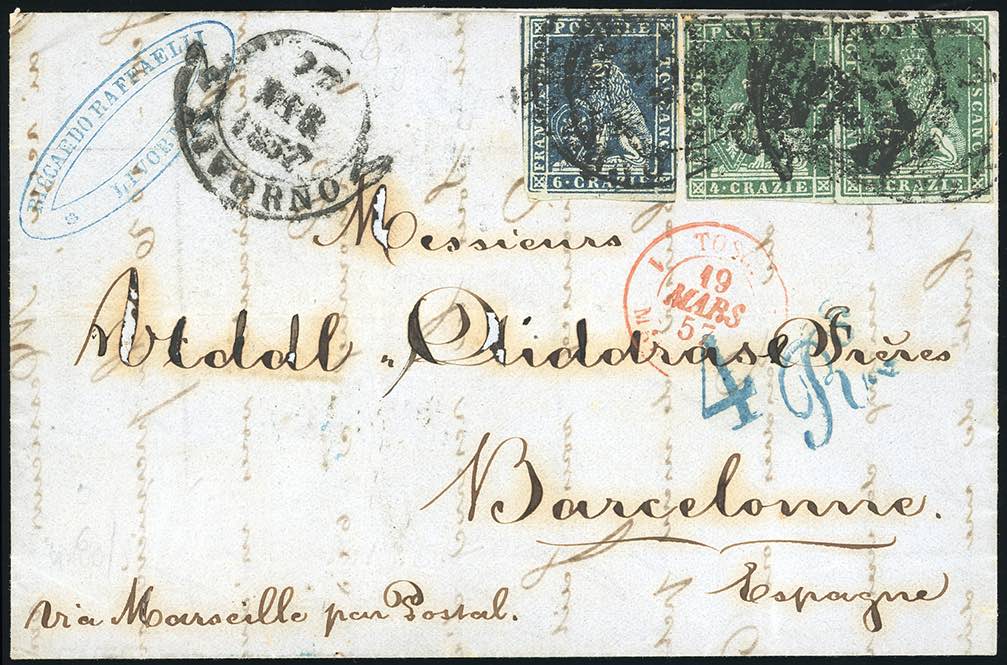 RICCARDO RAFFAELLI
LIVORNO
17
MAR
1857
LIVORNO
FRANCOBOLLO POSTALE TOSCANO
6·CRAZIE
FRANCOBOLLO POSTALE TOSCANO
4·CRAZIE
POSTALE TOSCANO
CRAZIE
TOSC
19
MARS
57
Messieurs
Vidal Frères
4 Rs
Barcelonne.
Espagne
via Marseille par Postal.